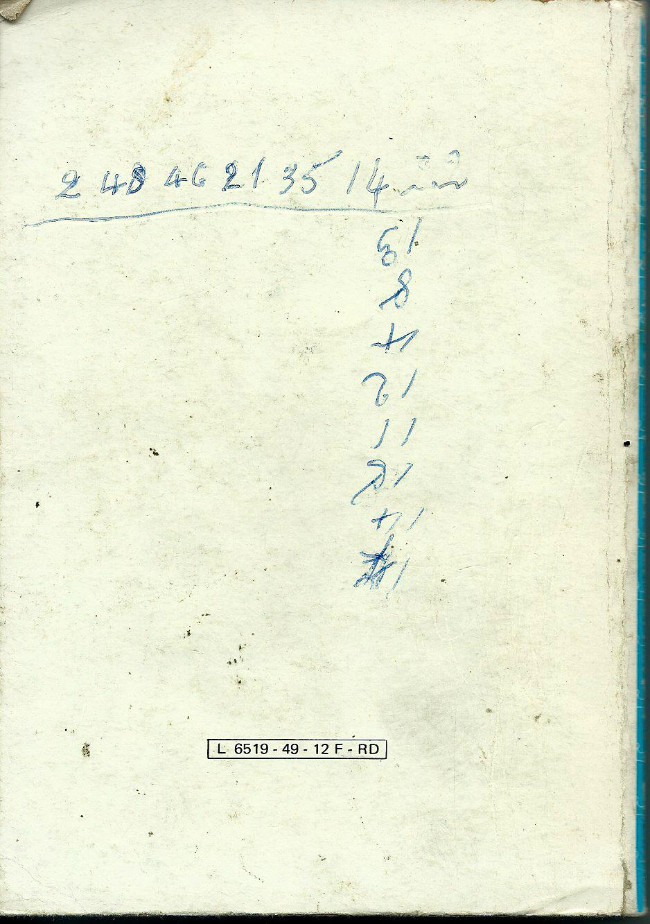 2 48 46 21 35 14
13
8
4
12
11
14
L 6519 - 49 - 12 F - RD